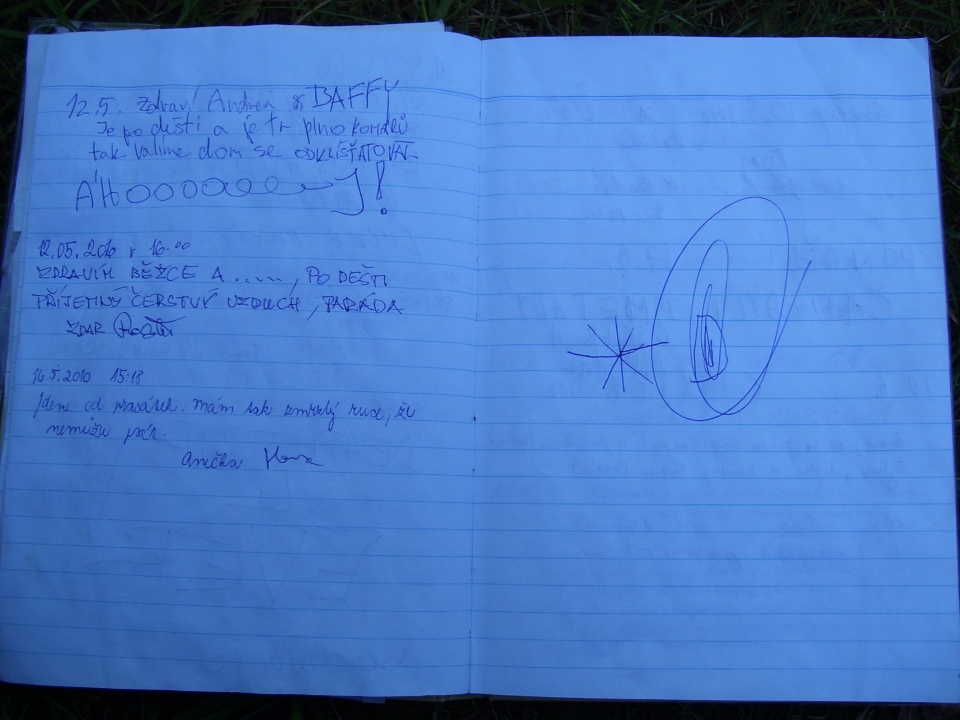 12.5. Zdraví Andrea & BAFFY
Je po dešti a je tr plno KOMÁRŮ
tak valíme dom se ODKLÍŠŤATOVAT
AHOOOOOOOJ!
12.05.2010 v 16.00
ZDRAVÍM BĚŽCE A ....., PO DEŠTI
PŘÍJEMNÝ ČERSTVÝ VZDUCH, PARÁDA
ZDAR
16.5.2010 15:18
Jdeme od prasátek. Mám tak zmrzlý ruce, že
nemůžu psát.
Anička